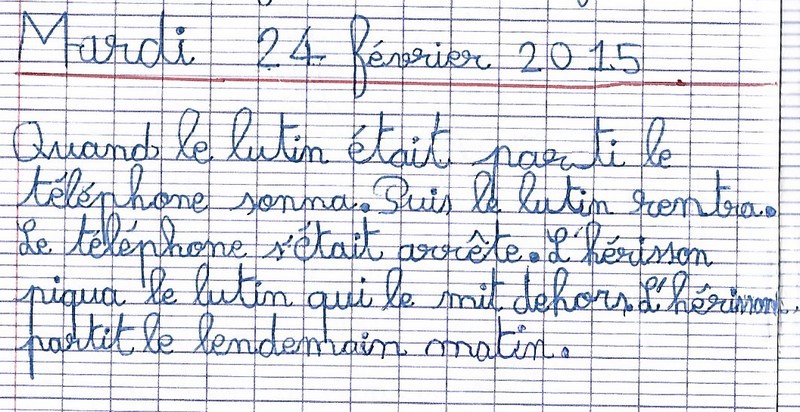 Mardi 24 février 2015
Quand le lutin était parti le
téléphone sonna. Puis le lutin rentra.
Le téléphone s'était arrête. L'hérisson
piqua le lutin qui le mit dehors. L'hérisson
partit le lendemain matin.